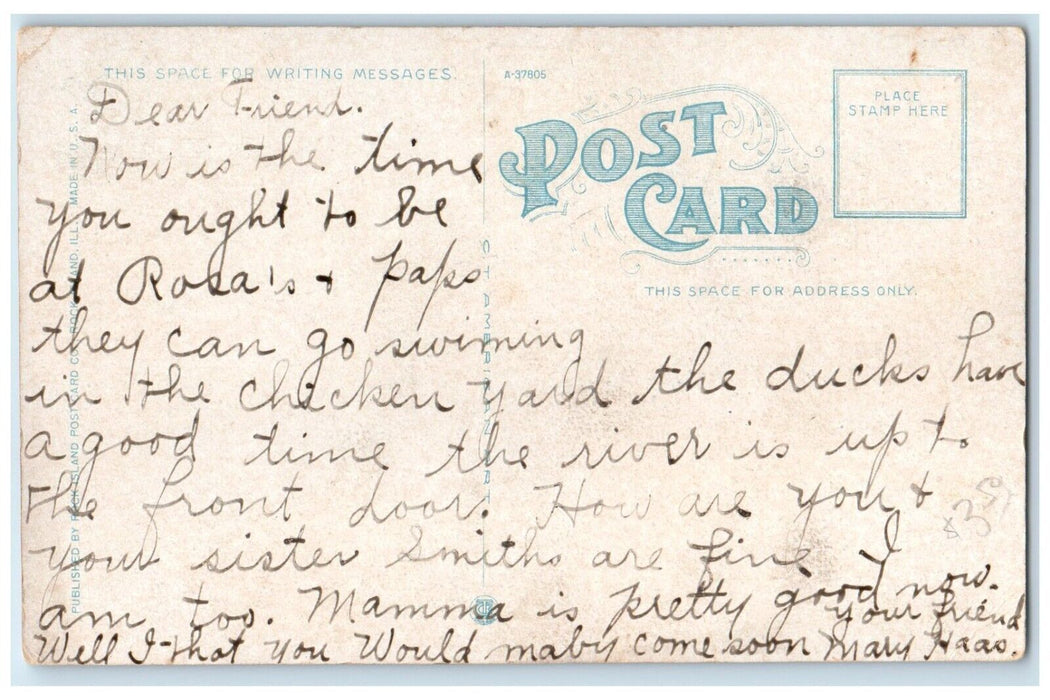 THIS SPACE FOR WRITING MESSAGES.
A-37805
POST CARD
PLACE
STAMP HERE
THIS SPACE FOR ADDRESS ONLY.
PUBLISHED BY ROCK ISLAND POST CARD CO., ROCK ISLAND, ILL. MADE IN U. S. A.
C. T. AMERICAN ART
Dear Friend.
Now is the time
you ought to be
at Rosa's + paps
they can go swiming
in the chicken yard the ducks have
a good time the river is up to
the front door. How are you +
your sister Smiths are fine I
am too. Mamma is pretty good now.
your friend
Well I that you Would maby come soon Mary Haas.